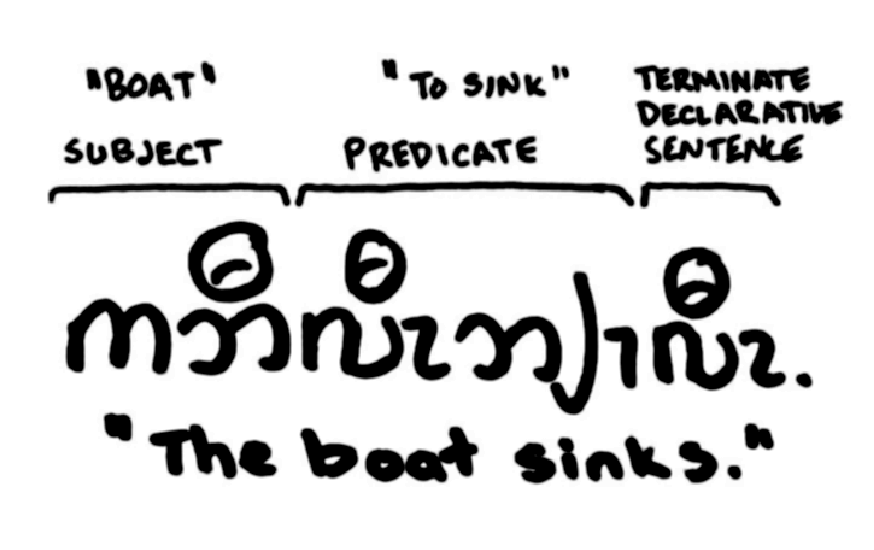 "BOAT"
SUBJECT
"TO SINK"
PREDICATE
TERMINATE
DECLARATIVE
SENTENCE
ကဘီလီၤဘျၢလီၤ.
"The boat sinks."